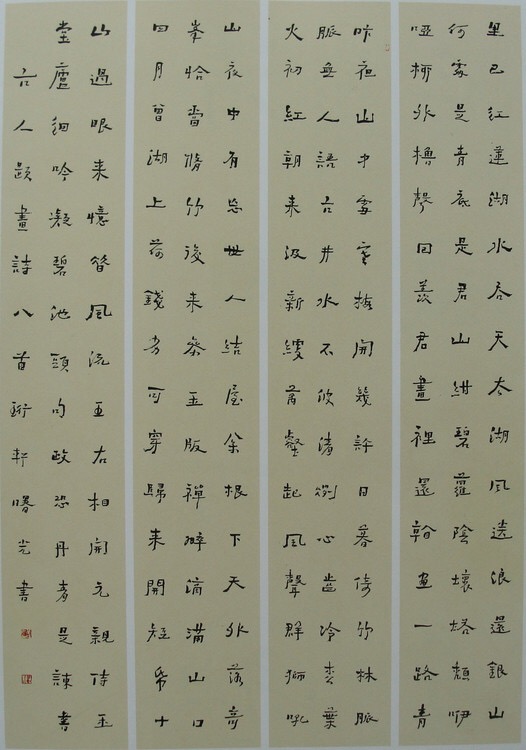 里已红蓮湖水合天太湖風送浪還銀山
何處是青底是君山紺碧蘿陰壞塔頹咿
啞柳外櫓聲回羨君畫裡還畫一路青
昨夜山中雷開幾許日暮倚竹林脈
脈無人語古井水不波清冽心齒冷葉
火初紅朝來汲新綆壑起風聲群獅吼
山衣中有忘世人結屋余根下天外落奇
峯恰當脩竹後來參玉版禪滴滿山口
四月曾湖上荷錢老可穿歸來開短帋十
山過眼來憶昔風流王右相開元親侍玉
堂廬細吟凝碧池頭句政恐丹青是諫書
古人題畫詩八首軒曙光書